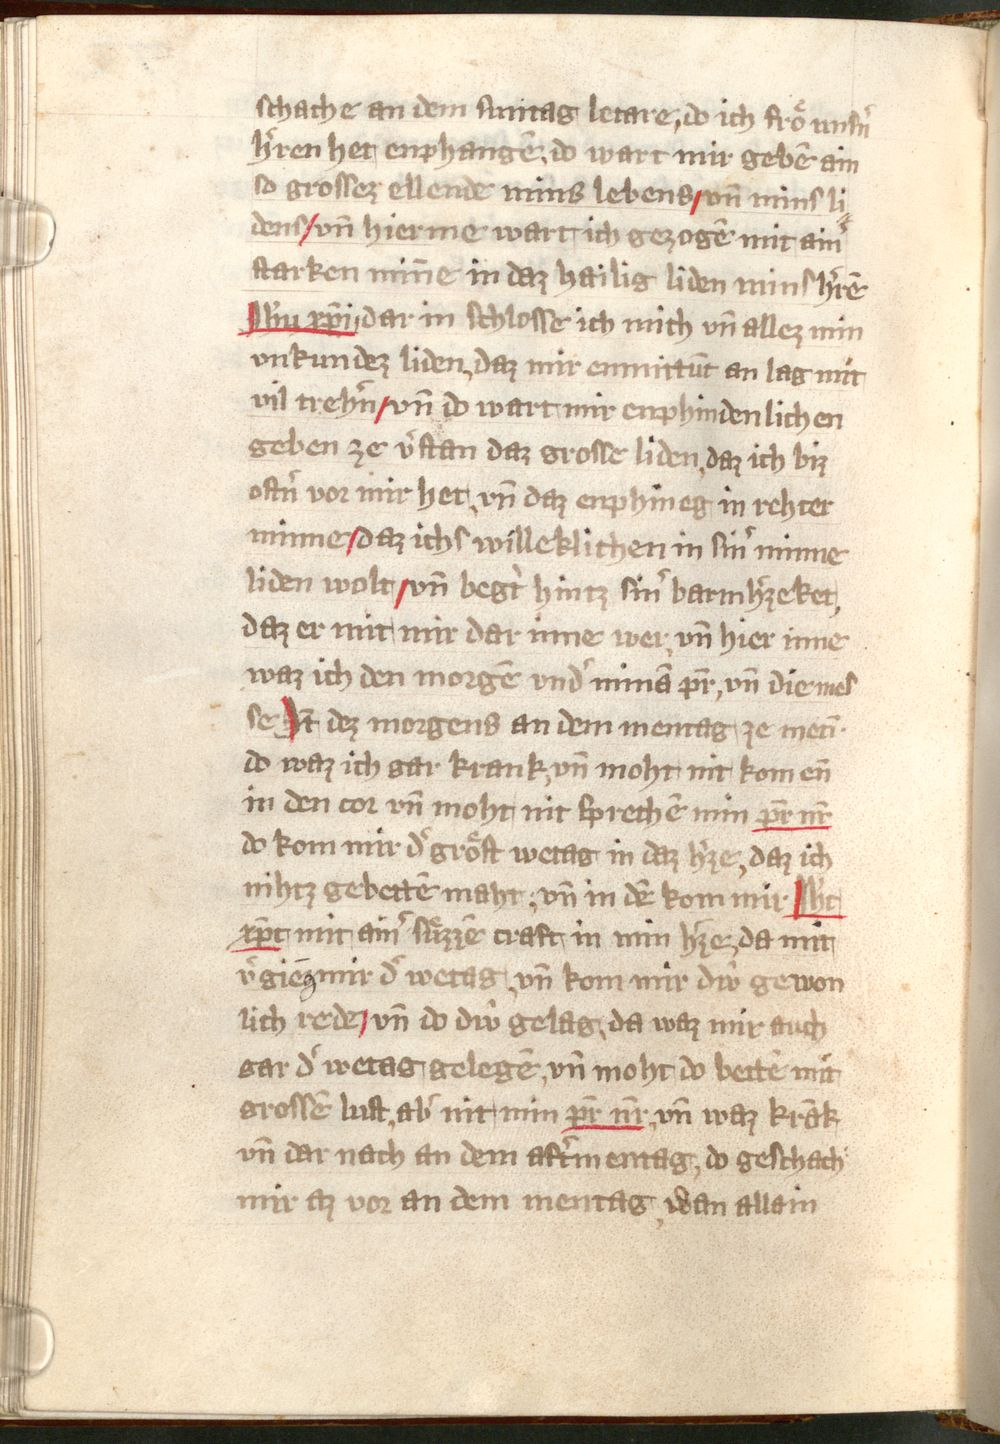 schache an dem suntag letare, do ich frŏ unsn̄
h'ren het enphangē, do wart mir gebē ain
so grossez ellende mins lebens/ vn̄ mins li
dens/ vn̄ hier me wart ich gezogē mit ain'
starken min̄e in daz hailig liden mins h'rē
Jh'u xp̄i, dar in schlosse ich mich vn̄ allez min
vnkundez liden, daz mir enmittūt an lag mit
vil treh'n/ vn̄ do wart mir enphindenlichen
geben ze v'stan daz grosse liden, daz ich biz
ost'n vor mir het, vn̄ daz enphineg in rehter
minne/ daz ichs willeklichen in sin' minne
liden wolt/ vn̄ beg't hintz sin' barmh'zeket,
daz er mit mir dar inne wer, vn̄ hier inne
waz ich den morgē vnd' minā pr̄, vn̄ die mes
se Vn̄ dez morgens an dem mentag ze meti.
do waz ich gar krank, vn̄ moht nit komen̄
in den cor vn̄ moht nit sprechē min pr̄ nr̄
do kom mir d' grŏst wetag in daz h'ze, daz ich
nihtz gebettē maht, vn̄ in dē kom mir Jh'c
xp̄c mit ain' sůzzē craft in min h'ze, da mit
v'giēz mir d' wetag, vn̄ kom mir diw̍ gewon
lich rede/ vn̄ do diw̍ gelag, da waz mir auch
gar d' wetag gelegē, vn̄ moht do bettē mit
grossē lust, ab' nit min pr̄ nr̄, vn̄ waz krāk
vn̄ dar nach an dem aft'mentag, do geschach
mir az vor an dem mentag, wan allain